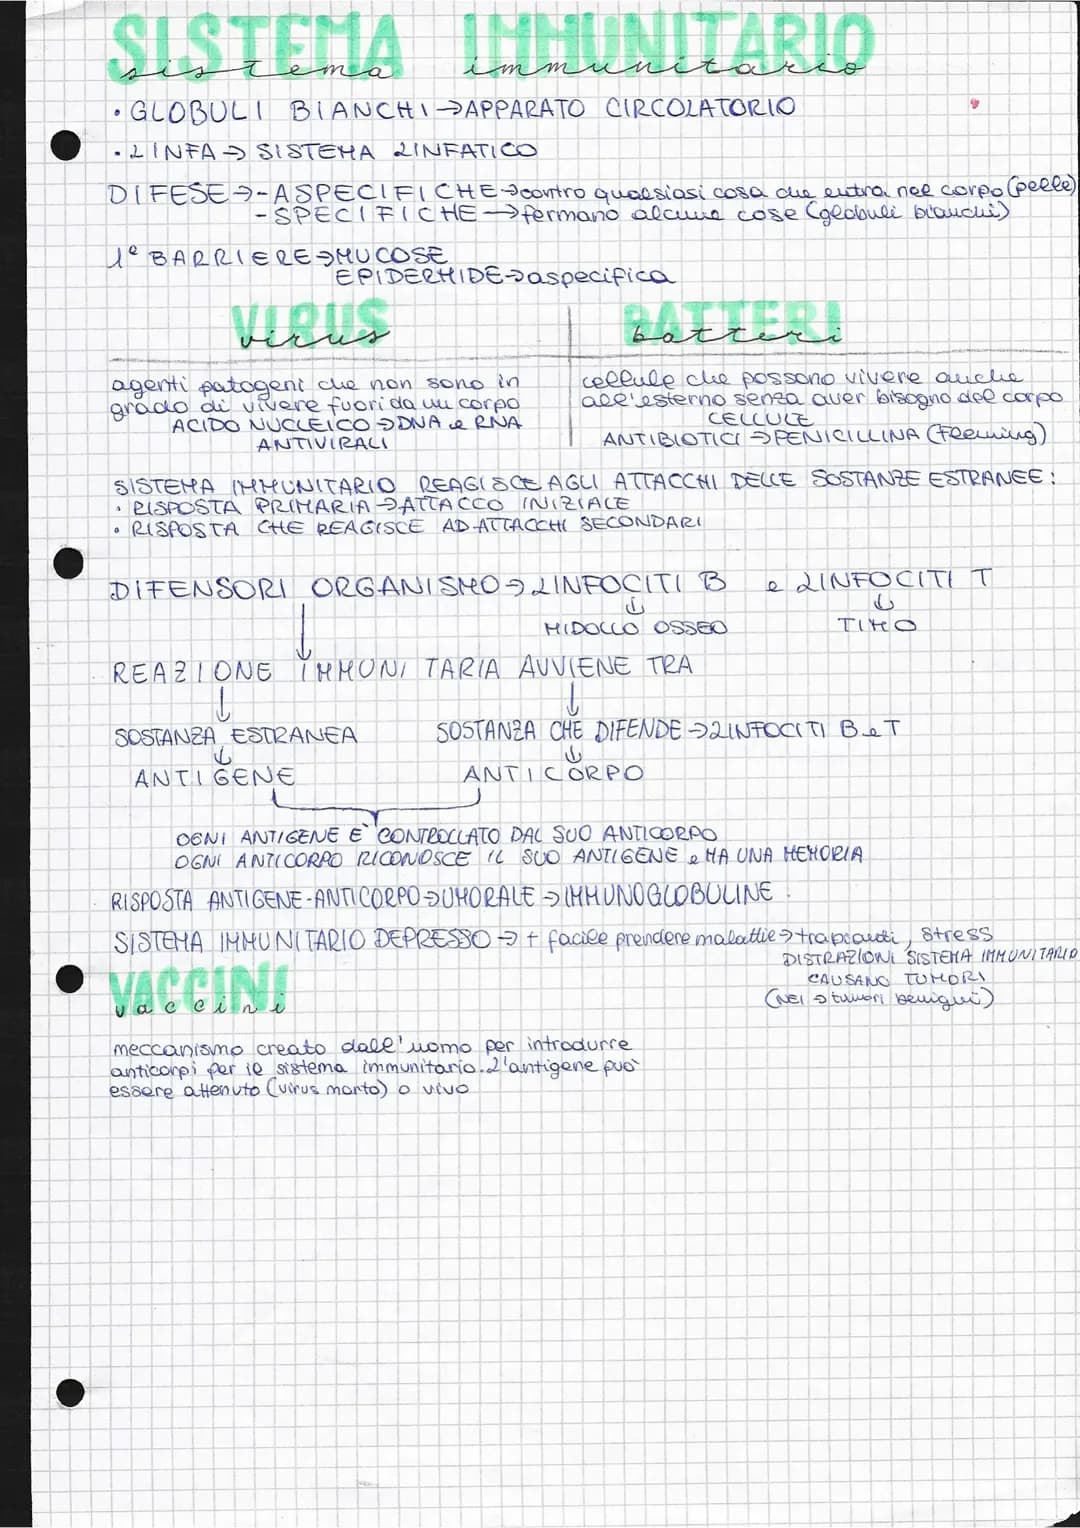 SISTEMA IMMUNITARIO
sistema immunitario
• GLOBULI BIANCHI → APPARATO CIRCOLATORIO
• LINFA → SISTEMA LINFATICO
DIFESE → - ASPECIFICHE → contro qualsiasi cosa che entra nel corpo (pelle)
- SPECIFICHE → fermano alcune cose (globuli bianchi)
1e BARRIERE → MUCOSE
EPIDERMIDE → aspecifica
VIRUS
virus
agenti patogeni che non sono in
grado di vivere fuori da un corpo
ACIDO NUCLEICO → DNA e RNA
ANTIVIRALI
BATTERI
batteri
cellule che possono vivere anche
all'esterno senza aver bisogno del corpo
CELLULE
ANTIBIOTICI → PENICILLINA (Fleming)
SISTEMA IMMUNITARIO REAGISCE AGLI ATTACCHI DELLE SOSTANZE ESTRANEE:
• RISPOSTA PRIMARIA → ATTACCO INIZIALE
• RISPOSTA CHE REAGISCE AD ATTACCHI SECONDARI
DIFENSORI ORGANISMO → LINFOCITI B e LINFOCITI T
↓ ↓
MIDOLLO OSSEO TIMO
REAZIONE IMMUNITARIA AVVIENE TRA
↓ ↓
SOSTANZA ESTRANEA SOSTANZA CHE DIFENDE → LINFOCITI B e T
↓ ↓
ANTIGENE ANTICORPO
OGNI ANTIGENE E' CONTROLLATO DAL SUO ANTICORPO
OGNI ANTICORPO RICONOSCE IL SUO ANTIGENE e HA UNA MEMORIA
RISPOSTA ANTIGENE-ANTICORPO → UMORALE → IMMUNOGLOBULINE.
SISTEMA IMMUNITARIO DEPRESSO → + facile prendere malattie → trapianti, stress
DISTRAZIONI SISTEMA IMMUNITARIO
CAUSANO TUMORI
(NEI → tumori benigni)
VACCINI
vaccini
meccanismo creato dall'uomo per introdurre
anticorpi per il sistema immunitario. L'antigene può
essere attenuto (virus morto) o vivo